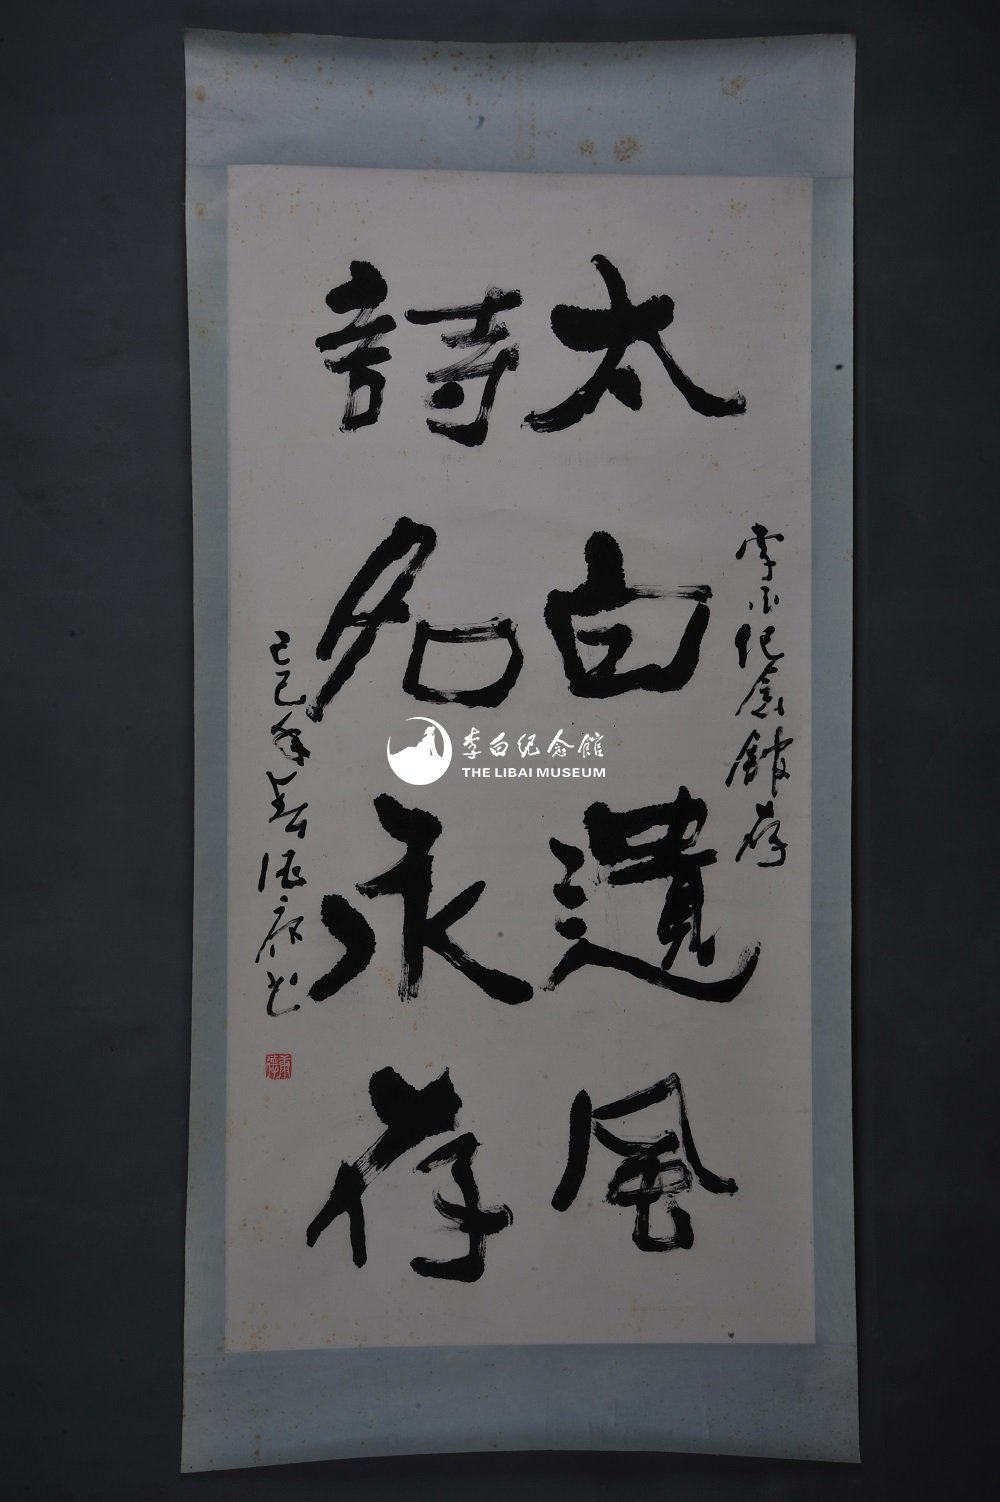 李白纪念館存
太白遺風
詩名永存
己巳年春德康书
李白纪念館
THE LIBAI MUSEUM